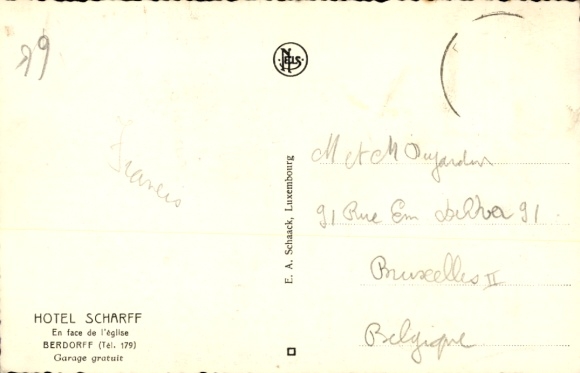 79
NELS
Francis
M et M Dujardin
91 Rue Em 91
Bruxelles II
Belgique
E. A. Schaack, Luxembourg
HOTEL SCHARFF
En face de l'église
BERDORFF (Tél. 179)
Garage gratuit